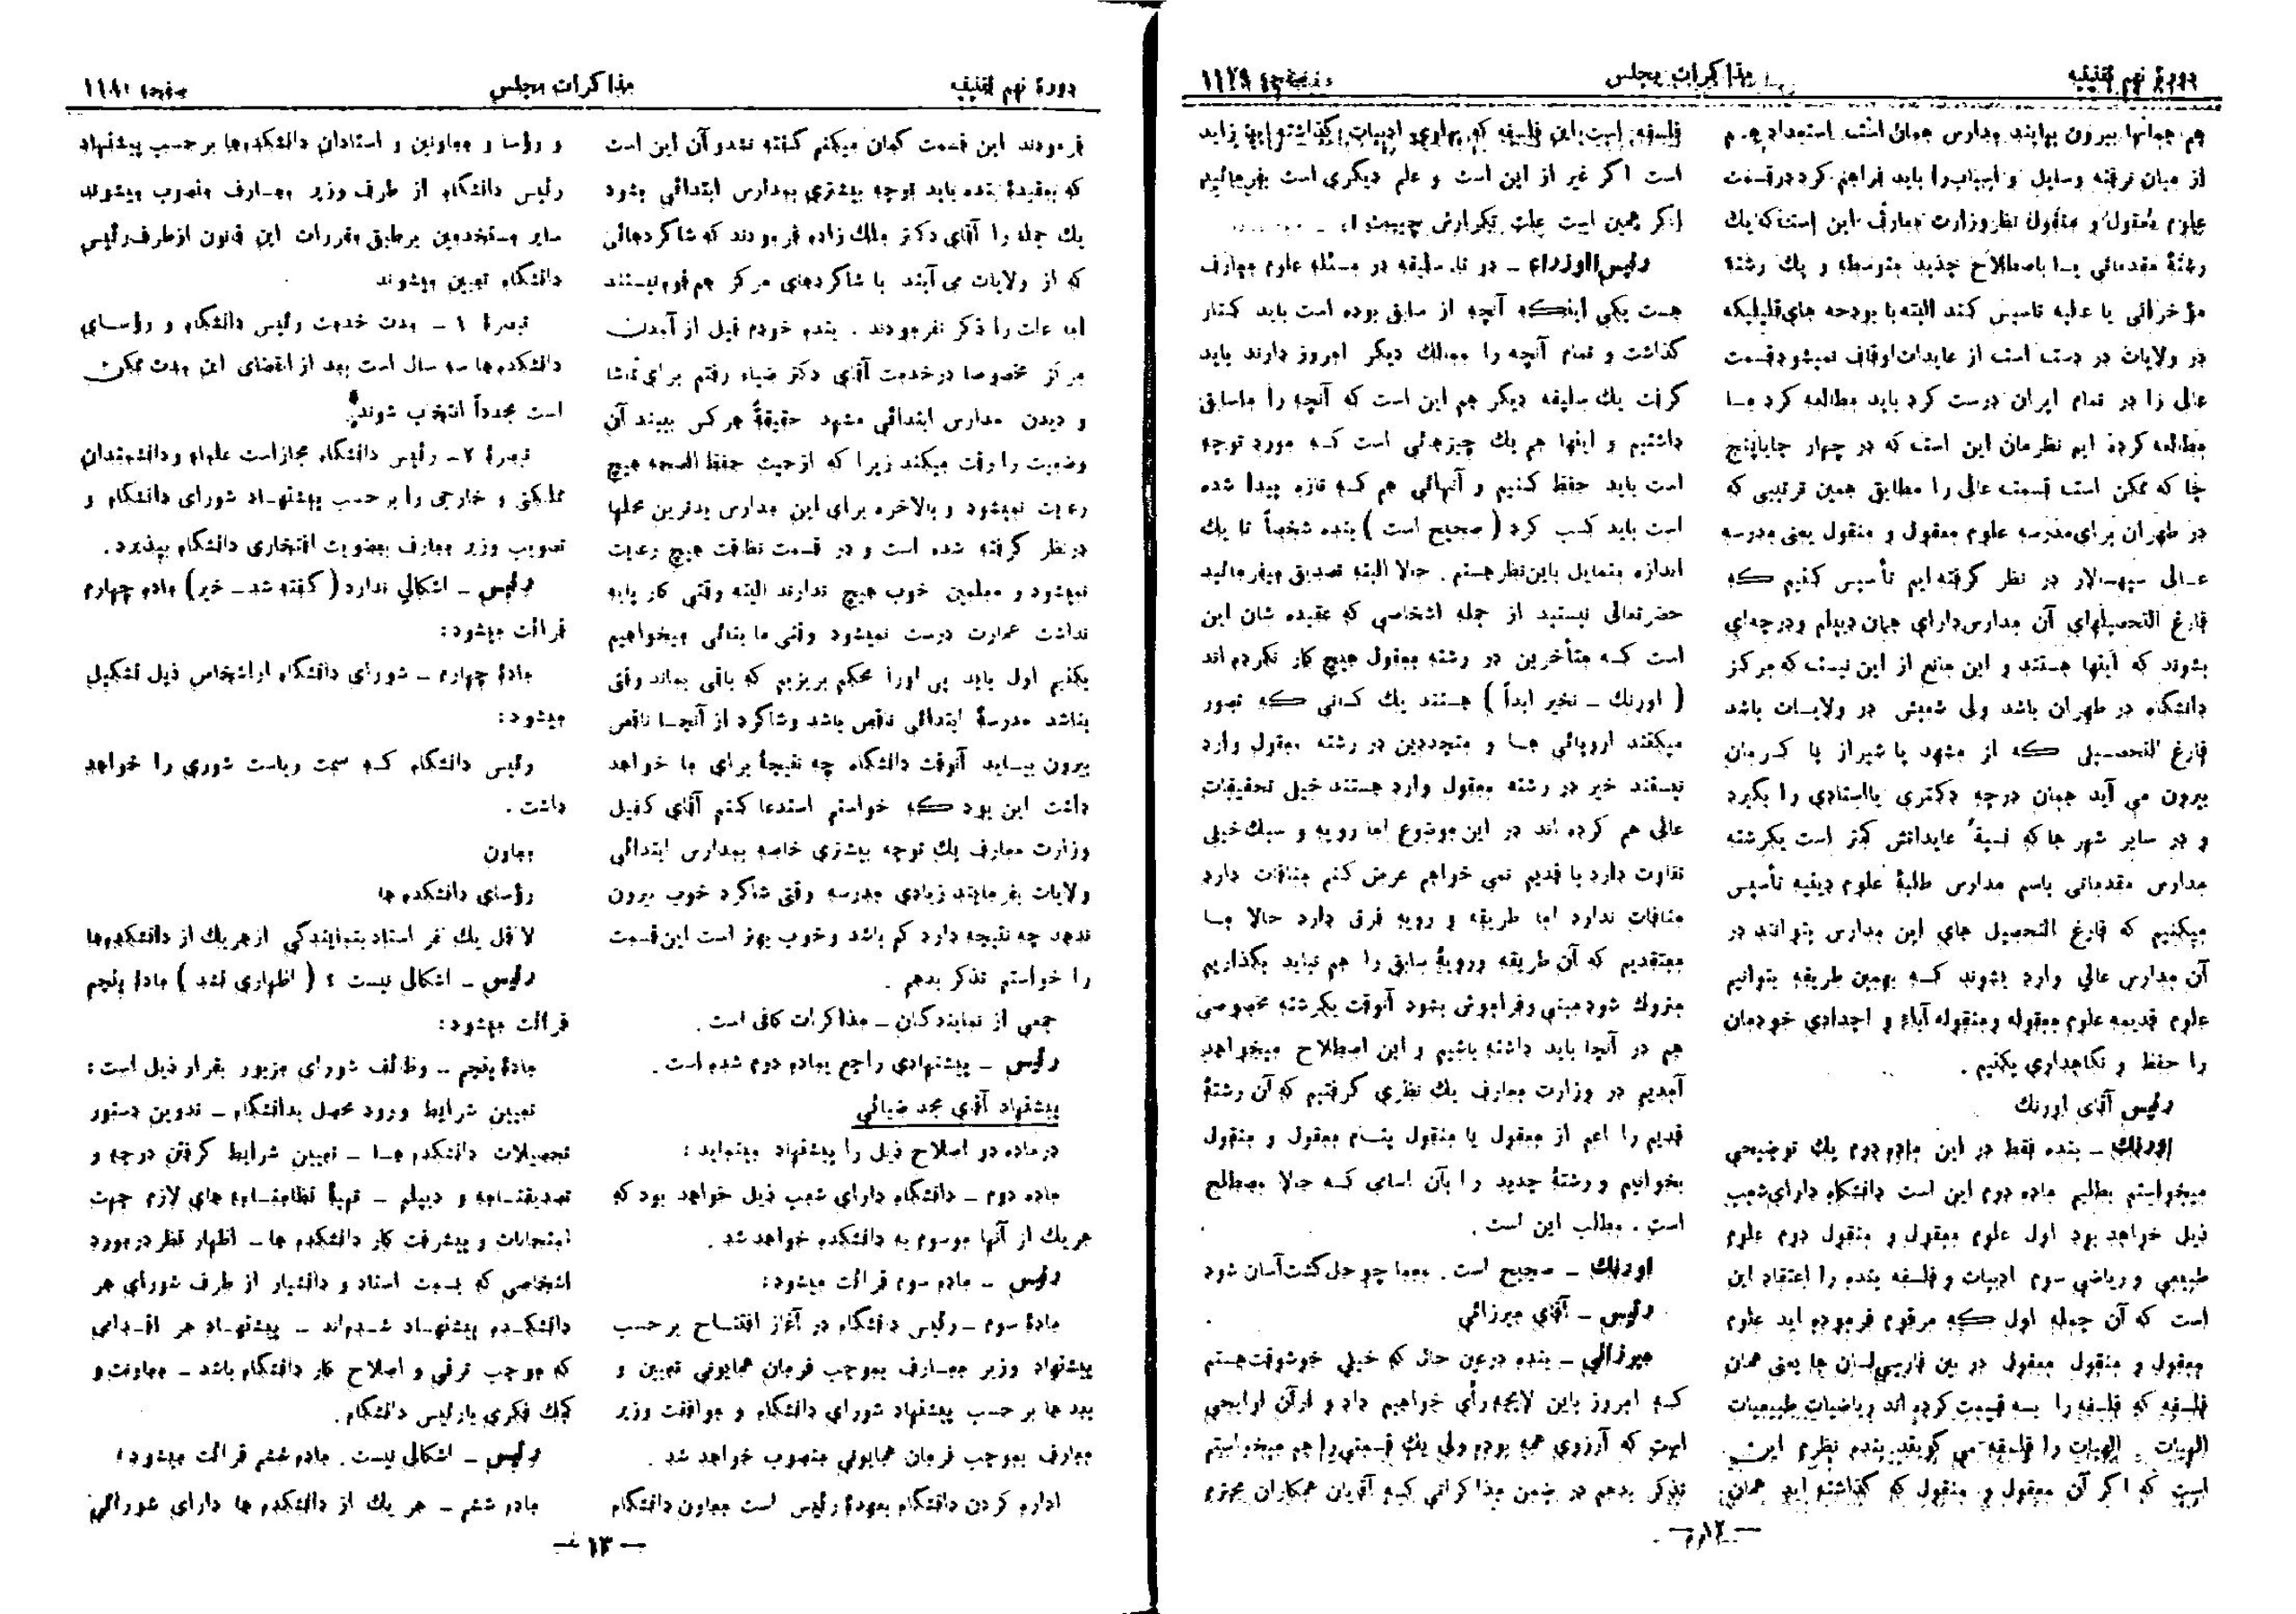 دورهٔ نهم تقنینیه
مذاکرات مجلس
صفحه ۱۱۷۹
هم همانها بیرون بیایند مدارس همان است استعداد هم
از میان نرفته وسایل و اسباب را باید فراهم کرد در قسمت
علوم معقول و منقول نظر وزارت معارف این است که یك
رشتهٔ مقدماتی یا باصطلاح جدید متوسطه و یك رشتهٔ
مؤخراتی یا عالیه تاسیس کند البته با بودجه های قلیلیکه
در ولایات در دست است از عایدات اوقاف نمیشود قسمت
عالی را در تمام ایران درست کرد باید مطالعه کرد ما
مطالعه کرده ایم نظرمان این است که در چهار جا یا پنج
جا که ممکن است قسمت عالی را مطابق همین ترتیبی که
در طهران برای مدرسه علوم معقول و منقول یعنی مدرسه
عالی سپهسالار در نظر گرفته ایم تأسیس کنیم که
فارغ التحصیلهای آن مدارس دارای همان دیپلم و درجه ای
بشوند که اینها هستند و این مانع از این نیست که مرکز
دانشگاه در طهران باشد ولی شعبش در ولایات باشد
فارغ التحصیلی که از مشهد یا شیراز یا کرمان
بیرون می آید همان درجه دکتری یا استادی را بگیرد
و در سایر شهر ها که نسبةً عایداتش کمتر است یکرشته
مدارس مقدماتی باسم مدارس طلبهٔ علوم دینیه تأسیس
میکنیم که فارغ التحصیل های این مدارس بتوانند در
آن مدارس عالی وارد بشوند که بهمین طریقه بتوانیم
علوم قدیمه علوم معقوله و منقوله آباء و اجدادی خودمان
را حفظ و نگاهداری بکنیم .
رئیس آقای اورنك
اورنك ـ بنده فقط در این ماده دوم یك توضیحی
میخواستم بطلبم ماده دوم این است دانشگاه دارای شعب
ذیل خواهد بود اول علوم معقول و منقول دوم علوم
طبیعی و ریاضی سوم ادبیات و فلسفه بنده را اعتقاد این
است که آن جمله اول که مرقوم فرموده اید علوم
معقول و منقول معقول در بین فارسی لسان ها یعنی همان
فلسفه که فلسفه را بسه قسمت کرده اند ریاضیات طبیعیات
الهیات . الهیات را فلسفه می گویند بنده نظرم این
است که اگر آن معقول و منقول که گذاشته اید همان
فلسفه است این فلسفه که پهلوی ادبیات گذاشته اید زاید
است اگر غیر از این است و علم دیگری است بفرمائید
اگر همین است علت تکرارش چیست ؟
رئیس الوزراء ـ دو تا سلیقه در مسئله علوم معارف
هست یکی اینکه آنچه از سابق بوده است باید کنار
گذاشت و تمام آنچه را ممالك دیگر امروز دارند باید
گرفت یك سلیقه دیگر هم این است که آنچه را ما سابق
داشتیم و اینها هم یك چیزهائی است که مورد توجه
است باید حفظ کنیم و آنهائی هم که تازه پیدا شده
است باید کسب کرد ( صحیح است ) بنده شخصاً تا یك
اندازه متمایل باین نظر هستم . حالا البته تصدیق میفرمائید
حضرتعالی نیستید از جمله اشخاصی که عقیده شان این
است که متأخرین در رشته معقول هیچ کار نکرده اند
( اورنك ـ نخیر ابداً ) هستند یك کسانی که تصور
میکنند اروپائی ها و متجددین در رشته معقول وارد
نیستند خیر در رشته معقول وارد هستند خیلی تحقیقات
عالی هم کرده اند در این موضوع اما رویه و سبك خیلی
تفاوت دارد با قدیم نمی خواهم عرض کنم منافات دارد
منافات ندارد اما طریقه و رویه فرق دارد حالا ما
معتقدیم که آن طریقه و رویهٔ سابق را هم نباید بگذاریم
متروك شود و فراموش بشود آنوقت یکرشته مخصوصی
هم در آنجا باید داشته باشیم و این اصطلاح میخواهد
آمدیم در وزارت معارف یك نظری گرفتیم که آن رشتهٔ
قدیم را اعم از معقول یا منقول بنام معقول و منقول
بخوانیم و رشتهٔ جدید را بآن اسامی که حالا مصطلح
است . مطلب این است .
اورنك ـ صحیح است . معما چو حل گشت آسان شود
رئیس ـ آقای میرزائی
میرزائی ـ بنده در عین حال که خیلی خوشوقت هستم
که امروز باین لایحه رأی خواهیم داد و از آن لوایحی
است که آرزوی همه بوده ولی یك قسمتی را هم میخواستم
تذکر بدهم در ضمن مذاکراتی که آقایان همکاران محترم
ـ ۱۲ ـ
دورهٔ نهم تقنینیه
مذاکرات مجلس
صفحه ۱۱۸۰
فرمودند این قسمت گمان میکنم گفته نشد و آن این است
که بعقیدهٔ بنده باید توجه بیشتری بمدارس ابتدائی بشود
یك جمله را آقای دکتر ملك زاده فرمودند که شاگردهائی
که از ولایات می آیند با شاگردهای مرکز هم قوه نیستند
اما علت را ذکر نفرمودند . بنده خودم قبل از آمدن
مرکز مخصوصا در خدمت آقای دکتر ضیاء رفتم برای تماشا
و دیدن مدارس ابتدائی مشهد حقیقةً هر کس ببیند آن
وضعیت را رقت میکند زیرا که از حیث حفظ الصحه هیچ
رعایت نمیشود و بالاخره برای این مدارس بدترین محلها
در نظر گرفته شده است و در قسمت نظافت هیچ رعایت
نمیشود و معلمین خوب هیچ ندارند البته وقتی کار پایه
نداشت عمارت درست نمیشود وقتی ما بنائی میخواهیم
بکنیم اول باید پی او را محکم بریزیم که باقی بماند وقتی
بناشد مدرسهٔ ابتدائی ناقص باشد و شاگرد از آنجا ناقص
بیرون بیاید آنوقت دانشگاه چه نتیجهٔ برای ما خواهد
داشت این بود که خواستم استدعا کنم آقای کفیل
وزارت معارف یك توجه بیشتری خاصه بمدارس ابتدائی
ولایات بفرمایند زیادی مدرسه وقتی شاگرد خوب بیرون
ندهد چه نتیجه دارد کم باشد و خوب بهتر است این قسمت
را خواستم تذکر بدهم .
جمعی از نمایندگان ـ مذاکرات کافی است .
رئیس ـ پیشنهادی راجع بماده دوم شده است .
پیشنهاد آقای محمد ضیائی
در ماده دو اصلاح ذیل را پیشنهاد مینماید :
ماده دوم ـ دانشگاه دارای شعب ذیل خواهد بود که
هر یك از آنها موسوم به دانشکده خواهد شد .
رئیس ـ ماده سوم قرائت میشود :
مادهٔ سوم ـ رئیس دانشگاه در آغاز افتتاح بر حسب
پیشنهاد وزیر معارف بموجب فرمان همایونی تعیین و
بعد ها بر حسب پیشنهاد شورای دانشگاه و موافقت وزیر
معارف بموجب فرمان همایونی منصوب خواهد شد .
اداره کردن دانشگاه بعهدهٔ رئیس است معاون دانشگاه
و رؤسا و معاونین و استادان دانشکده ها بر حسب پیشنهاد
رئیس دانشگاه از طرف وزیر معارف منصوب میشوند
سایر مستخدمین بر طبق مقررات این قانون از طرف رئیس
دانشگاه تعیین میشوند
تبصرهٔ ۱ ـ مدت خدمت رئیس دانشگاه و رؤسای
دانشکده ها سه سال است بعد از انقضای این مدت ممکن
است مجدداً انتخاب شوند
تبصرهٔ ۲ ـ رئیس دانشگاه مجاز است علماء و دانشمندان
مملکتی و خارجی را بر حسب پیشنهاد شورای دانشگاه و
تصویب وزیر معارف بعضویت افتخاری دانشگاه بپذیرد .
رئیس ـ اشکالی ندارد ( گفته شد ـ خیر ) ماده چهارم
قرائت میشود :
مادهٔ چهارم ـ شورای دانشگاه از اشخاص ذیل تشکیل
میشود :
رئیس دانشگاه که سمت ریاست شوری را خواهد
داشت .
معاون
رؤسای دانشکده ها
لا اقل یك نفر استاد بنمایندگی از هر یك از دانشکده ها
رئیس ـ اشکالی نیست ؟ ( اظهاری نشد ) مادهٔ پنجم
قرائت میشود :
مادهٔ پنجم ـ وظائف شورای مزبور بقرار ذیل است :
تعیین شرایط ورود محصل بدانشگاه ـ تدوین دستور
تحصیلات دانشکده ها ـ تعیین شرایط گرفتن درجه و
تصدیقنامه و دیپلم ـ تهیهٔ نظامنامه های لازم جهت
امتحانات و پیشرفت کار دانشکده ها ـ اظهار نظر در مورد
اشخاصی که بسمت استاد و دانشیار از طرف شورای هر
دانشکده پیشنهاد شده اند ـ پیشنهاد هر اقدامی
که موجب ترقی و اصلاح کار دانشگاه باشد ـ معاونت و
کمك فکری با رئیس دانشگاه .
رئیس ـ اشکالی نیست . ماده ششم قرائت میشود :
ماده ششم ـ هر یك از دانشکده ها دارای شورائی
ـ ۱۳ ـ